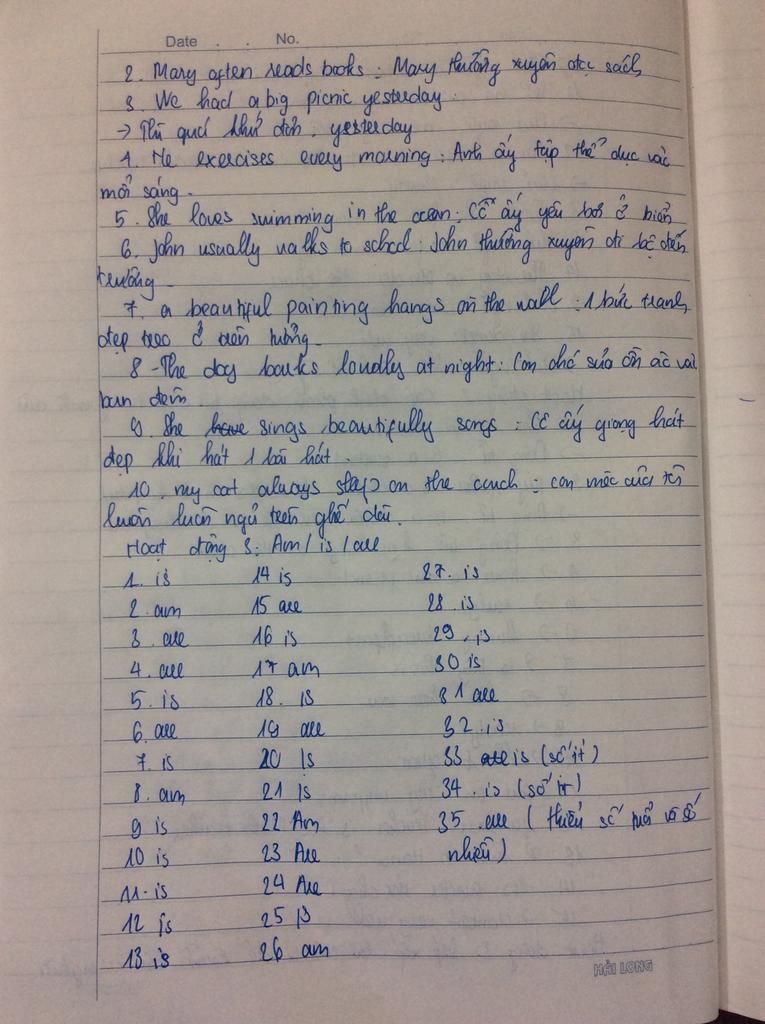 Date . . No.
2. Mary often reads books : Mary thường xuyên đọc sách
3. We had a big picnic yesterday.
→ Thì quá khứ đơn. yesterday
4. He exercises every morning : Anh ấy tập thể dục vào
mỗi sáng.
5. She loves swimming in the ocean : Cô ấy yêu bơi ở biển
6. John usually walks to school : John thường xuyên đi bộ đến
trường.
7. a beautiful painting hangs on the wall : 1 bức tranh
đẹp treo ở trên tường.
8 - The dog barks loudly at night : Con chó sủa ồn ào vào
ban đêm.
9. She have sings beautifully songs : Cô ấy giọng hát
đẹp khi hát 1 bài hát.
10. my cat always sleep on the couch : con mèo của tôi
luôn luôn ngủ trên ghế dài.
Hoạt động 3: Am / is / are
1. is 14 is 27. is
2. am 15 are 28. is
3. are 16 is 29. is
4. are 17 am 30 is
5. is 18. is 31 are
6. are 19 are 32. is
7. is 20 Is 33 are is (số ít)
8. am 21 Is 34. is (số ít)
9 is 22 Am 35. are ( thiếu số và số
10 is 23 Are nhiều )
11. is 24 Are
12 is 25 Is
13 is 26 am
HẢI LONG